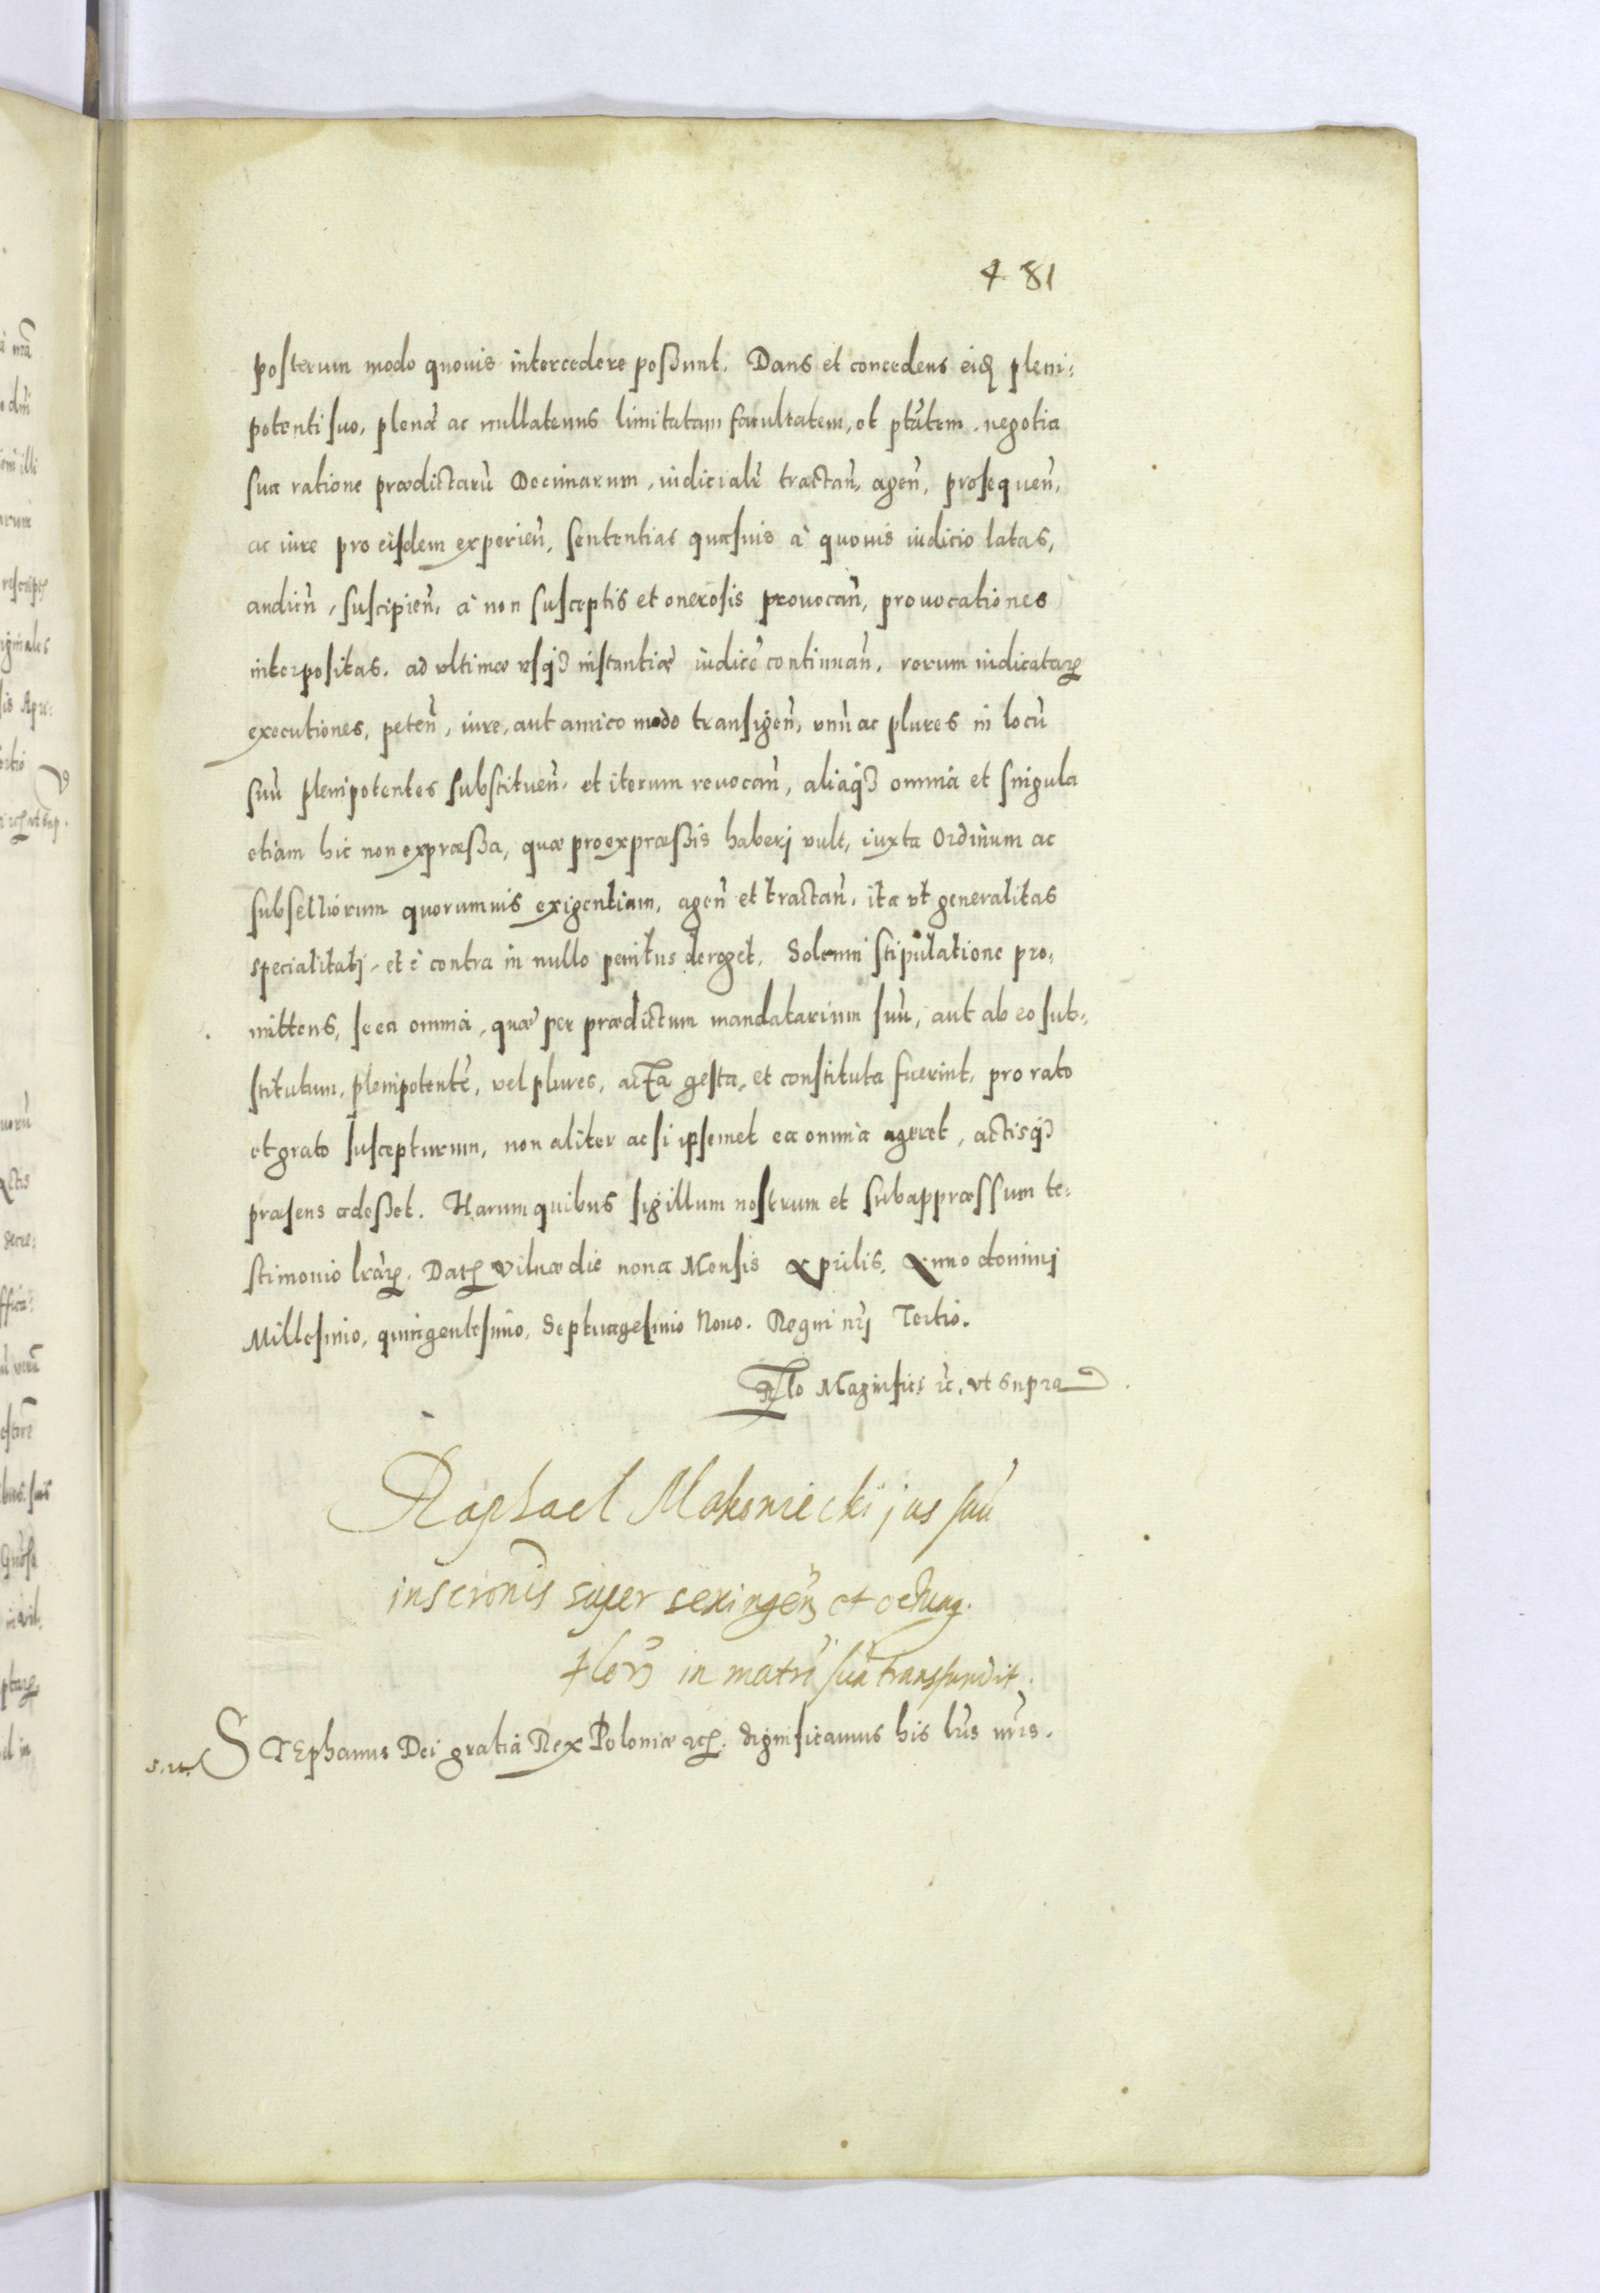 481
posterum modo quovis intercedere poßunt. Dans et concedens eid[em] pleni:
potenti suo, plenā ac nullatenus limitatam facultatem, et ptātem. negotia
sua ratione prædictarū Decimarum, iudicialr̄ tractan̄, agen̄, prosequen̄,
ac iure pro eisdem experien̄, sententias quasuis à quouis iudicio latas,
audien̄, suscipien̄, à non susceptis et onerosis prouocan̄, prouocationes
interpositas, ad vltimæ vsq3 instantiæ iudicē continuan̄, rerum iudicatarꝝ
executiones, peten̄, iure, aut amico modo transigen̄, vnū ac plures in locū
suū plenipotentes substituen̄, et iterum reuocan̄, aliaq3 omnia et singula
etiam hic non expræßa, quæ pro expræßis haberj vult, iuxta Ordinum ac
subselliorum quorumuis exigentiam, agen̄ et tractan̄, ita vt generalitas
specialitatj, et è contra in nullo penitus deroget. Solenni stipulatione pro:
mittens, se ea omnia, quæ per prædictum mandatarium suū, aut ab eo sub:
stitutum, plenipotentē, vel plures, acta gesta, et constituta fuerint, pro rato
et grato suscepturum, non aliter ac si ipsemet ea omnia ageret, actisq3
præsens adeßet. Harum quibus sigillum nostrum et subappræssum te:
stimonio lrarꝝ. Datꝝ Vilnæ die nona Mensis Aprilis. Anno dominj
Millesimo, quingentesimo, Septuagesimo Nono. Regni nrj Tertio.
Rlo Magnifici rc̄. vt supra
Raphael Makowiecki jus suū
inscronis super sexingen̄ et octuag.
flor̄ in matrē suā transfundit.
STEphanus Dei gratia Rex Poloniæ rcꝝ. Significamus his lr̄is nr̄is.